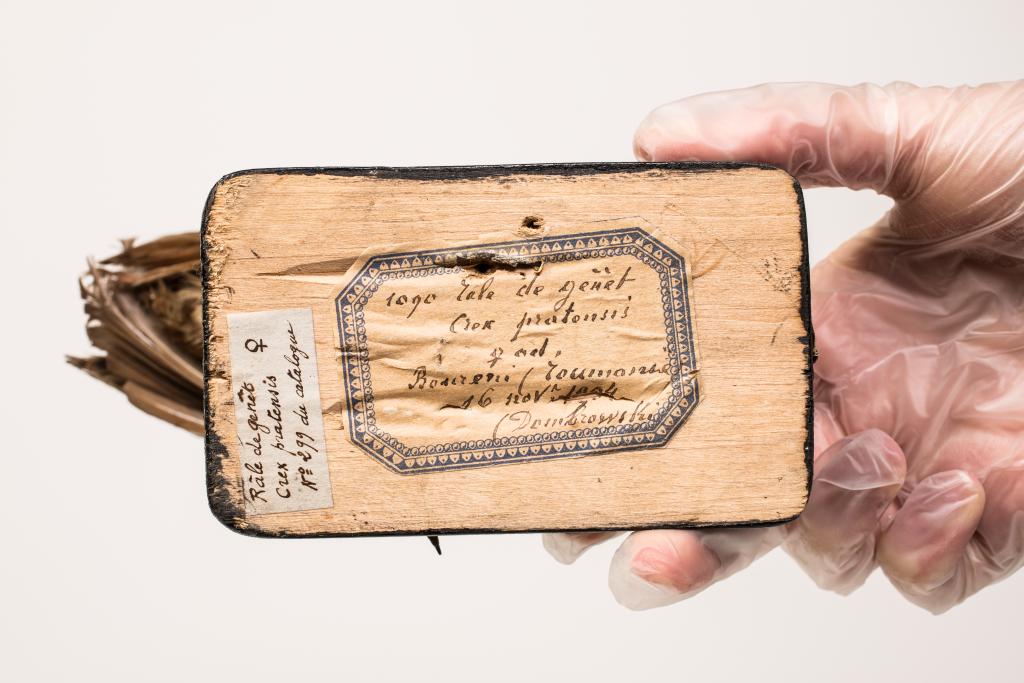 Râle de genêt ♀
Crex pratensis
Nº 299 du catalogue
1090 Râle de genêt
Crex pratensis
♀ ad.
(Roumanie
16 novᵇ
(Dombrowski)